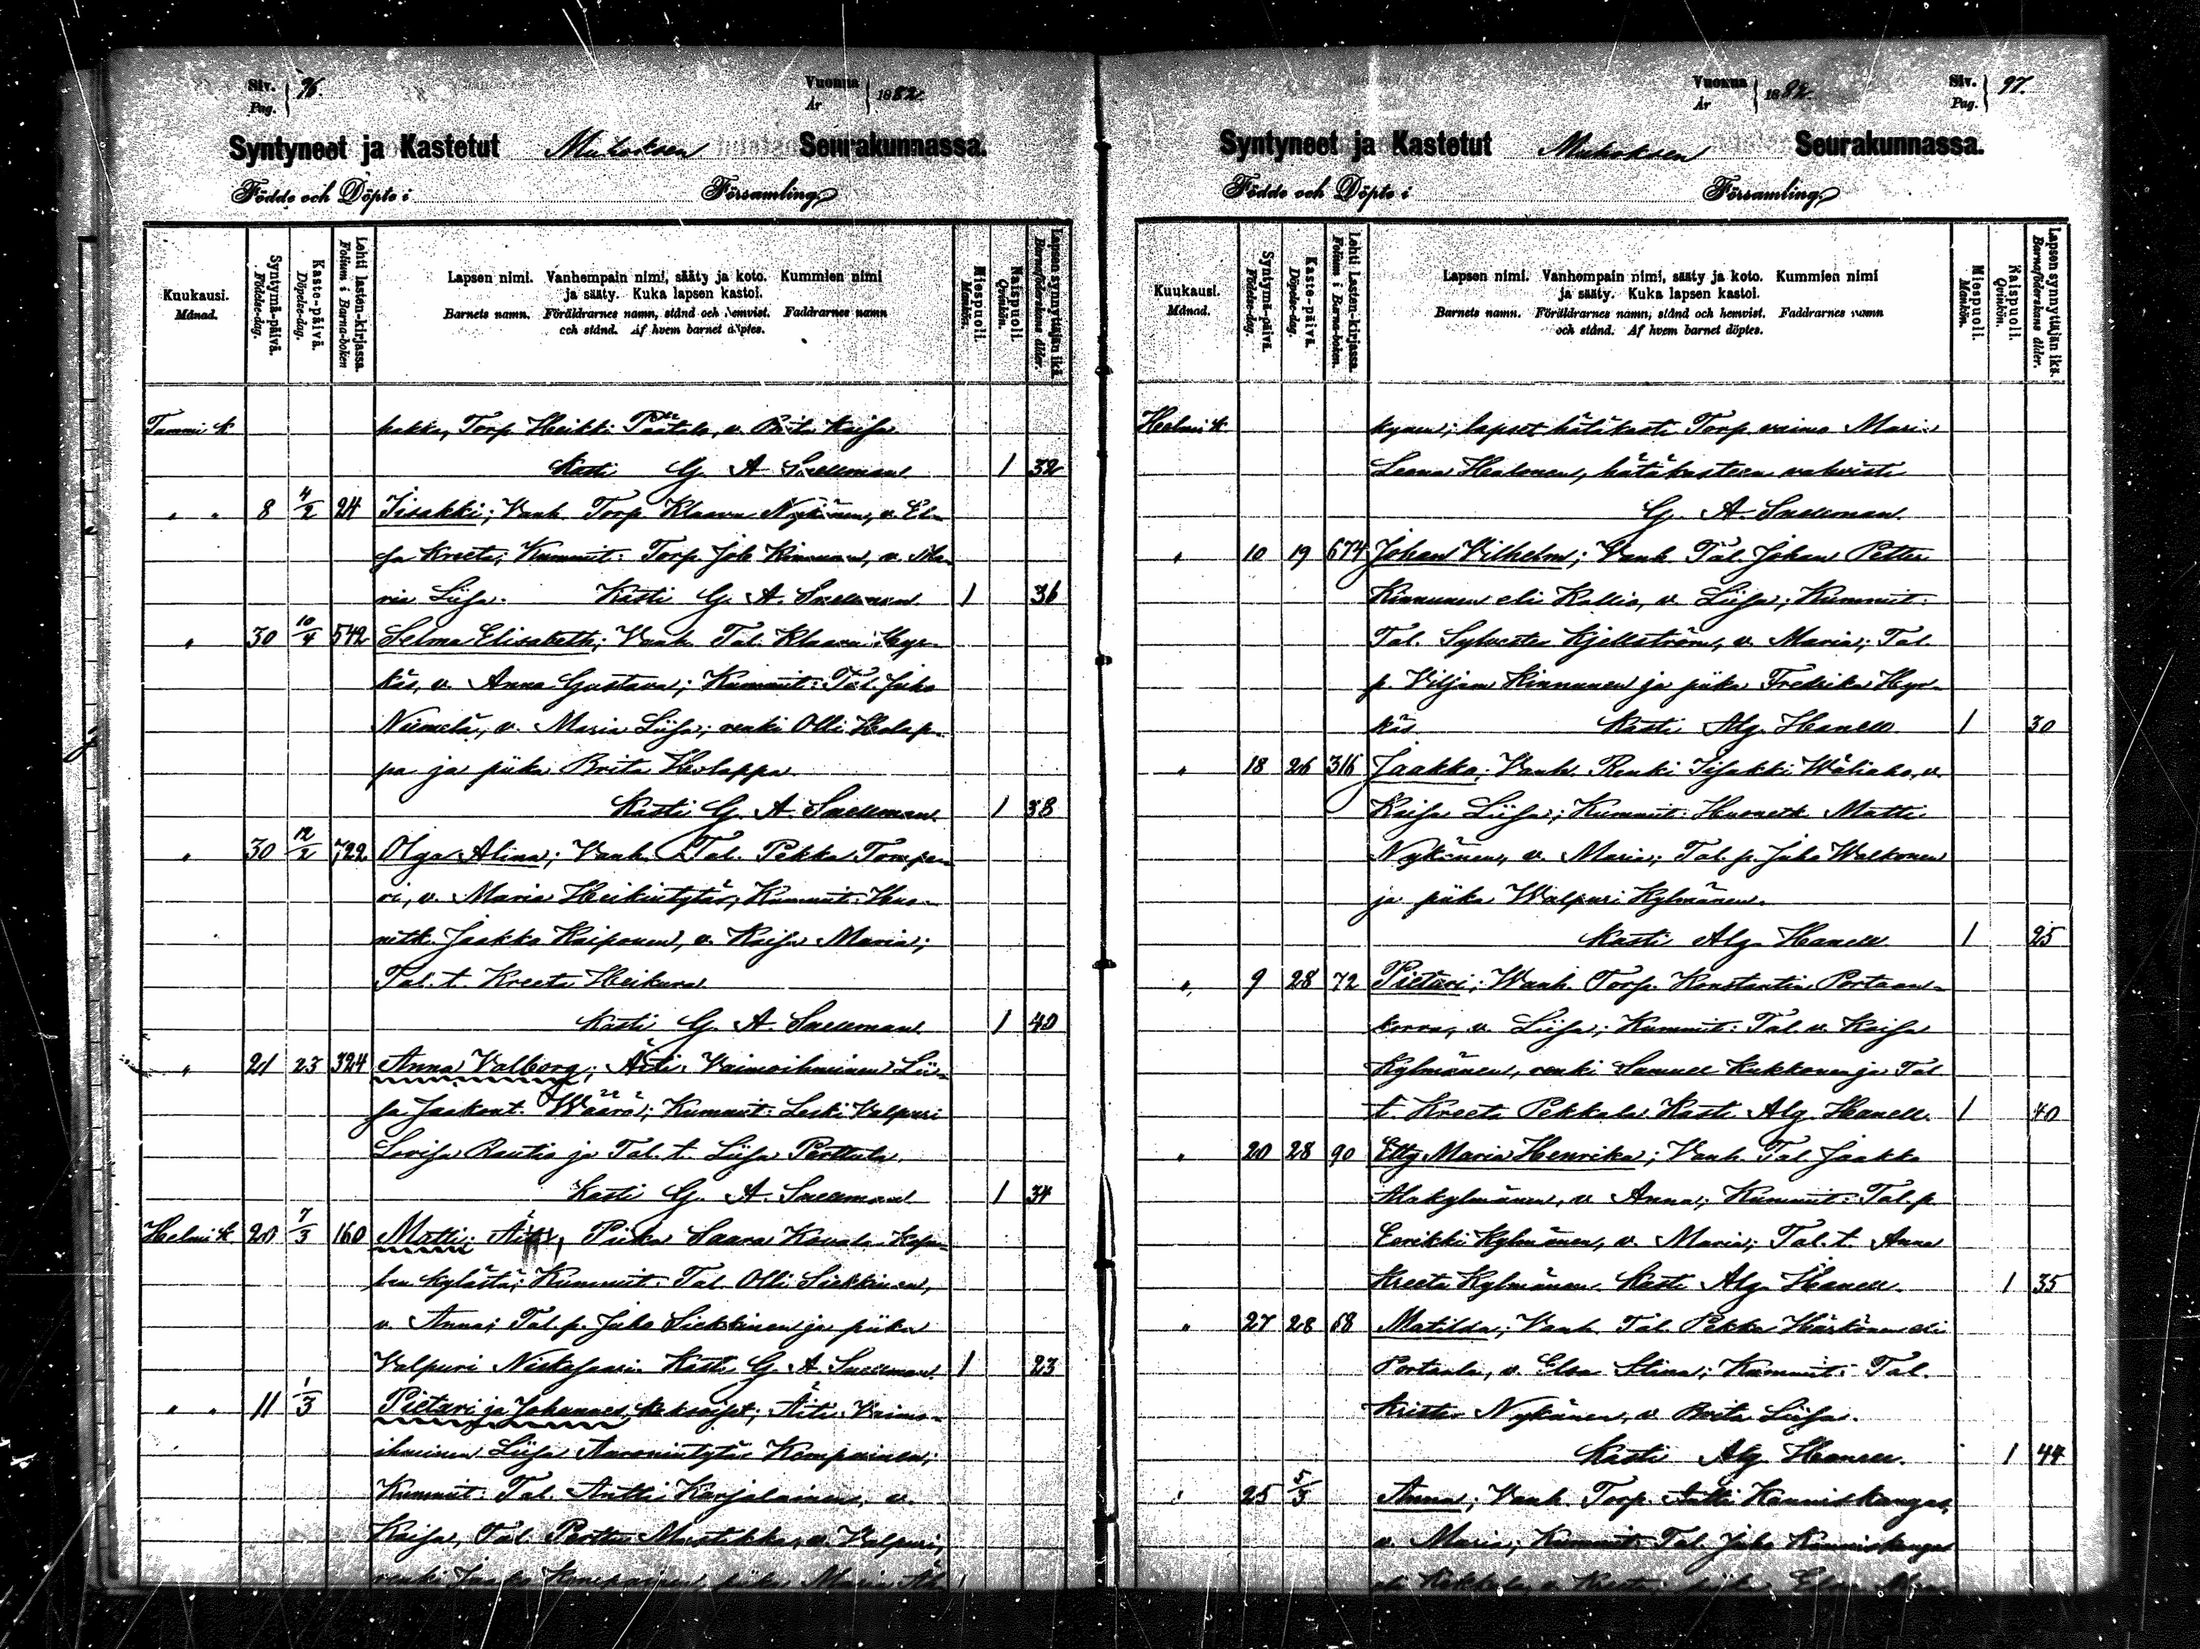 Siv. Pag. 96 Vuonna År 1882.
Syntyneet ja Kastetut Muhoksen Seurakunnassa.
Födde och Döpte i Församling
Kuukausi. Månad.
Syntymä-päivä. Födelse-dag.
Kaste-päivä. Döpelse-dag.
Lehti lasten-kirjassa. Folium i Barna-boken
Lapsen nimi. Vanhempain nimi, sääty ja koto. Kummien nimi
ja sääty. Kuka lapsen kastoi.
Barnets namn. Föräldrarnes namn, stånd och hemvist. Faddrarnes namn
och stånd. Af hvem barnet döptes.
Miespuoli. Mankön.
Naispuoli. Qvinkön.
Lapsen synnyttäjän ikä. Barnaföderskans ålder.
Tammi k. pakka, Torp. Heikki Päätalo, v. Brita Kaisa
Kasti G. A. Snellman 1 32
" " 8 4/2 24 Iisakki; Vanh. Torp. Klaara Nykänen, v. El-
sa Kreeta; Kummit: Torp. Job Kinnunen, v. Ma-
ria Liisa. Kasti G. A. Snellman 1 36
" 30 10/4 542 Selma Elisabeth; Vanh. Tal. Klaara Hyr-
käs, v. Anna Gustava; Kummit: Tal. Juho
Niemelä, v. Maria Liisa; renki Olli Holap-
pa ja piika Brita Holappa.
Kasti G. A. Snellman 1 38
" 30 12/2 722 Olga Alina; Vanh. Tal. Pekka Tompe-
ri, v. Maria Heikintytär; Kummit: Huo-
netk. Jaakko Kaiponen, v. Kaisa Maria;
Tal. t. Kreeta Heikura.
Kasti G. A. Snellman 1 40
" 21 23 324 Anna Valborg; Äiti: Vaimoihminen Lii-
sa Jaakont. Määrä; Kummit: Leski Valpuri
Lovisa Rautio ja Tal. t. Liisa Perttula.
Kasti G. A. Snellman 1 34
Helmi k. 20 7/3 160 Matti; Äiti, Piika Saara Kovala
kylästä; Kummit: Tal. Olli Siekkinen,
v. Anna; Tal. p. Juho Siekkinen ja piika
Valpuri Niskasaari. Kasti G. A. Snellman 1 23
" " 11 1/3 Pietari ja Johannes, kaksoiset; Äiti: Vaimo-
ihminen Liisa Aaronintytär Komppainen;
Kummit: Tal. Antti Karjalainen, v.
Kaisa, Tal. Perttu Mustikka, v. Valpuri,
renki Komppainen, piika Maria
Vuonna År 1882. Siv. Pag. 97.
Syntyneet ja Kastetut Muhoksen Seurakunnassa.
Födde och Döpte i Församling
Kuukausi. Månad.
Syntymä-päivä. Födelse-dag.
Kaste-päivä. Döpelse-dag.
Lehti Lasten-kirjassa. Folium i Barna-boken.
Lapsen nimi. Vanhempain nimi, sääty ja koto. Kummien nimi
ja sääty. Kuka lapsen kastoi.
Barnets namn. Föräldrarnes namn, stånd och hemvist. Faddrarnes namn
och stånd. Af hvem barnet döptes.
Miespuoli. Mankön.
Naispuoli. Qvinkön.
Lapsen synnyttäjän ikä. Barnaföderskans ålder.
Helmi k. kynen; lapset hätäkasti Torp. vaimo Maria
Leena Halonen, hätäkasteen vahvisti
G. A. Snellman.
" 10 19 674 Johan Vilhelm; Vanh. Tal. Johan Petter
Kinnunen eli Kallio, v. Liisa; Kummit:
Tal. Sylvester Kjellström, v. Maria; Tal.
p. Viljam Kinnunen ja piika Fredrika Hyr-
käs. Kasti Alg. Hanell 1 30
" 18 26 316 Jaakko; Vanh. Renki Iisakki Wäliaho, v.
Kaisa Liisa; Kummit: Huonetk. Matti
Nykänen, v. Maria; Tal. p. Juho Walkonen
ja piika Walpuri Kylmänen.
Kasti Alg. Hanell 1 25
" 9 28 72 Pietari; Wanh. Torp. Konstantin Portaan-
korva, v. Liisa; Kummit: Tal. v. Kaisa
Kylmänen, renki Samuel Kukkonen ja Tal.
t. Kreeta Pekkala. Kasti Alg. Hanell. 1 40
" 20 28 90 Etty Maria Henrika; Vanh. Tal. Jaakko
Alakylmänen, v. Anna; Kummit: Tal. p.
Eerikki Kylmänen, v. Maria; Tal. t. Anna
Kreeta Kylmänen. Kasti Alg. Hanell. 1 35
" 27 28 68 Matilda; Vanh. Tal. Pekka Härkönen eli
Portaala, v. Elsa Stina; Kummit: Tal.
Krister Nykänen, v. Brita Liisa.
Kasti Alg. Hanell. 1 44
" 25 5/3 Anna; Vanh. Torp. Antti Hanniskangas,
v. Maria; Kummit: Tal. Juho Kinniskangas
eli v. Kreeta; piika Elsa